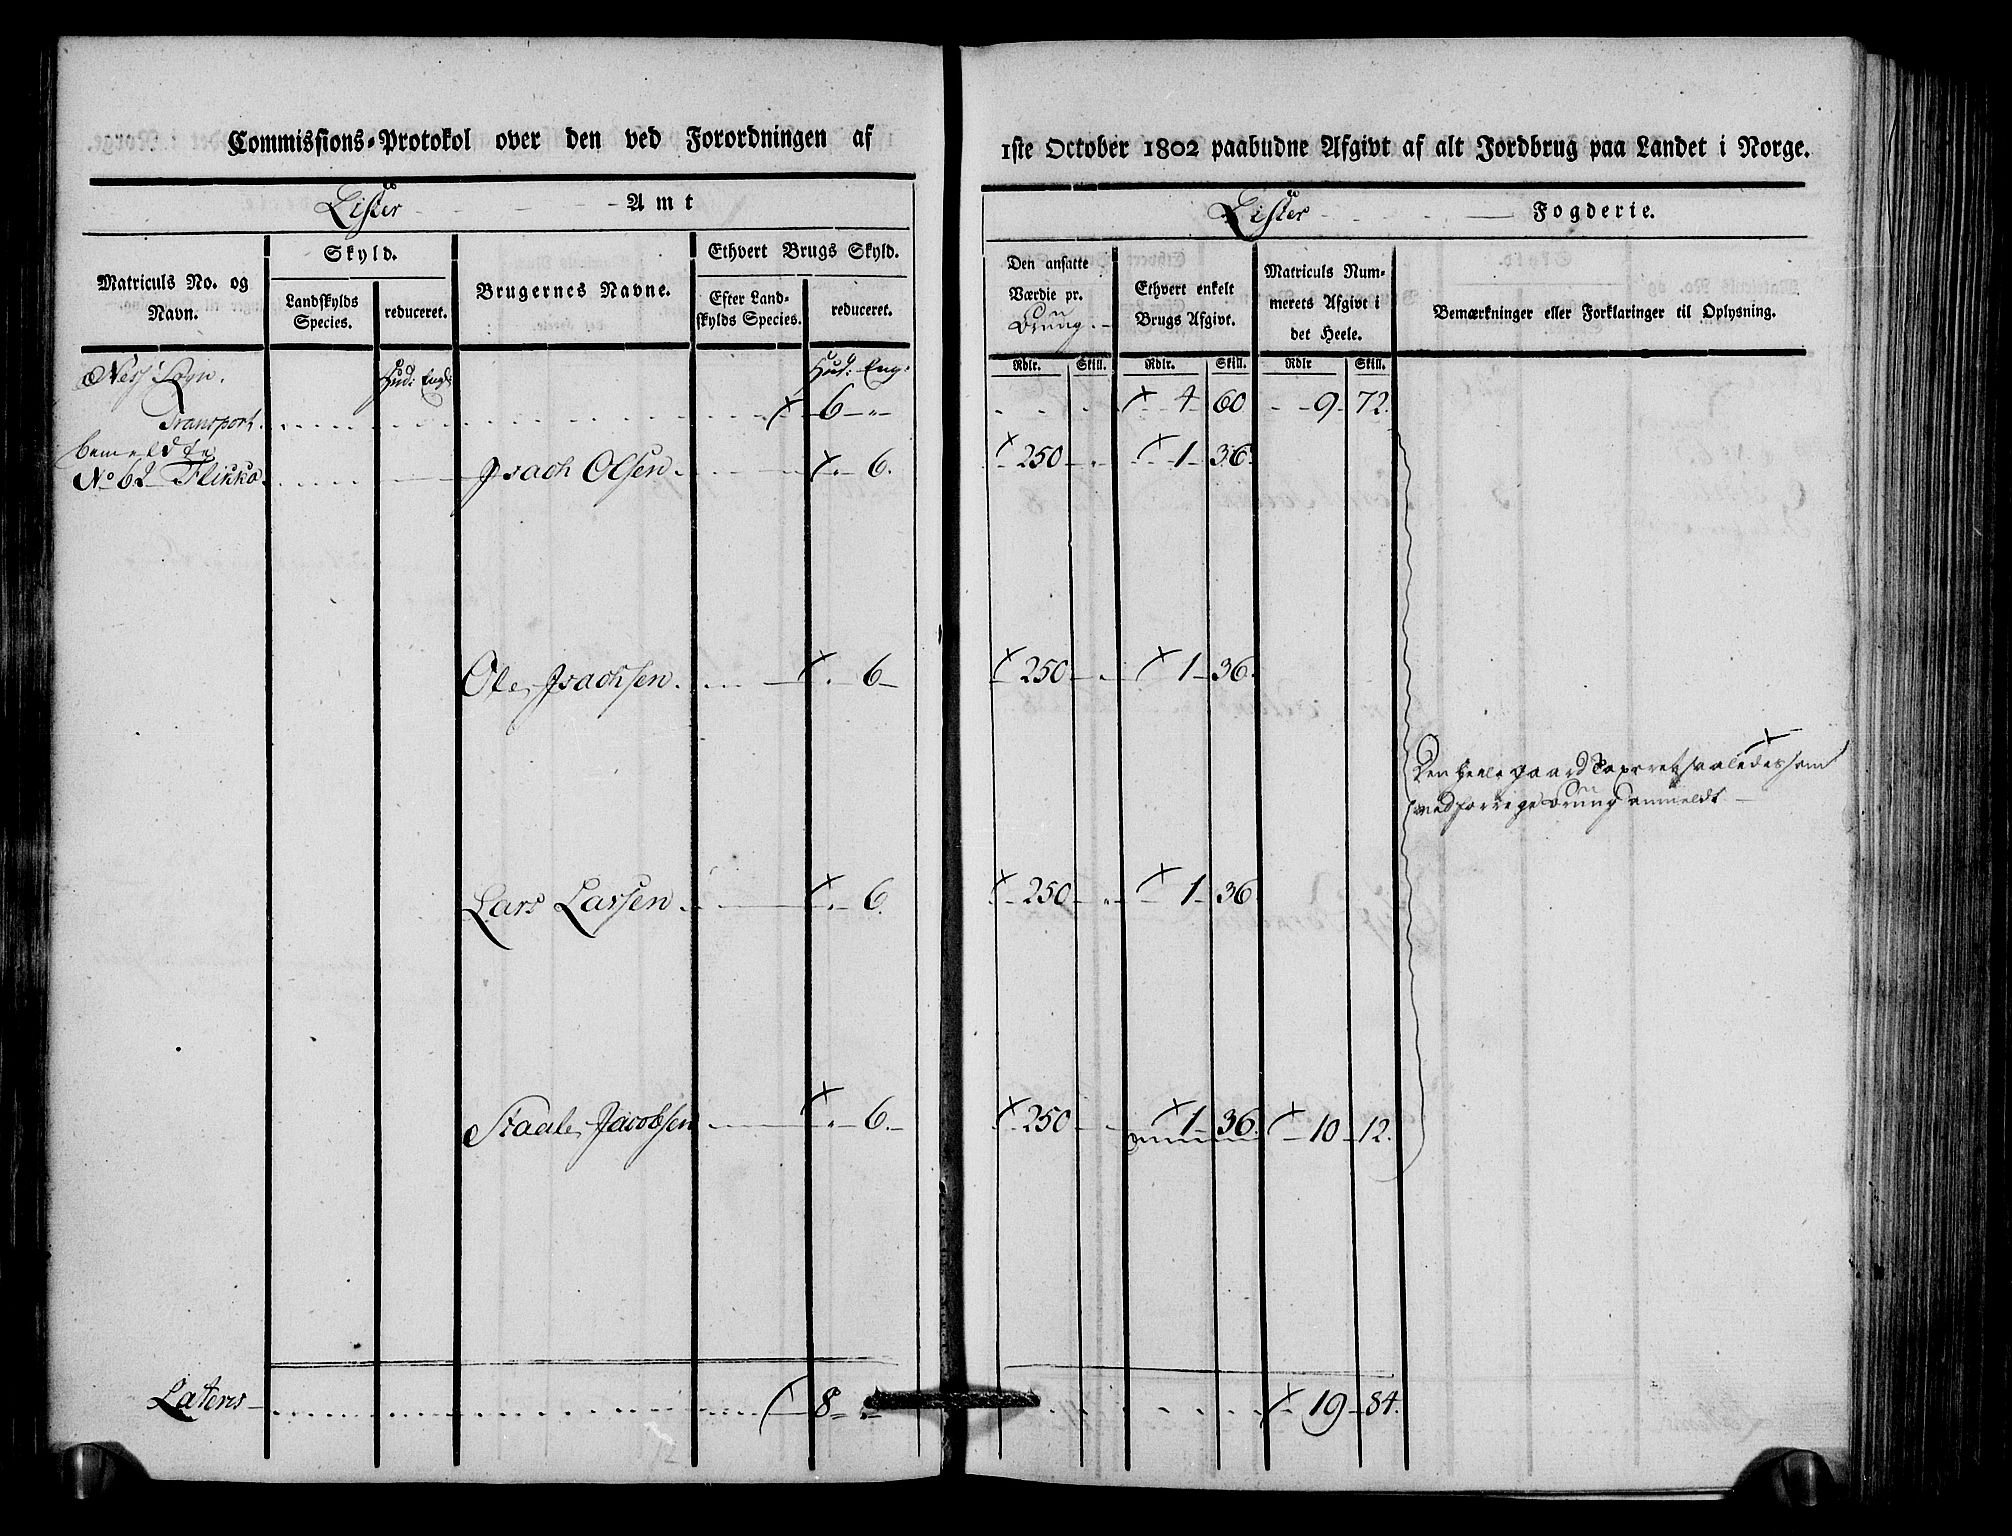 Commissions-Protokol over den ved Forordningen af
Lister Amt
Matriculs No. og Navn.
Skyld.
Landskylds Species.
reduceret.
Brugernes Navne.
Ethvert Brugs Skyld.
Efter Landskylds Species.
reduceret.
Ness Sogn.
Hud: Eng:
Hud: Eng:
Transport 6 〃
bemeldte
No 62 Flikko. Isach Olsen 〃 6.
Ole Isachsen. 〃 6
Lars Larsen. 〃 6.
Staale Jacobsen 〃 6
Lateris 8 〃
1ste October 1802 paabudne Afgivt af alt Jordbrug paa Landet i Norge.
Lister Fogderie.
Den ansatte Værdie pr. Brug.
Ethvert enkelt Brugs Afgivt.
Matriculs Nummerets Afgivt i det Heele.
Bemærkninger eller Forklaringer til Oplysning.
Rdlr. Skill. Rdlr. Skill. Rdlr Skill.
4 60 9 72.
250 〃 1 36.
250 〃 1 36.
Den heele gaard taxeret saaledes som
ved forrige brug anmeldt
250 〃 1 36
250 1 36. 10 12.
19 84.